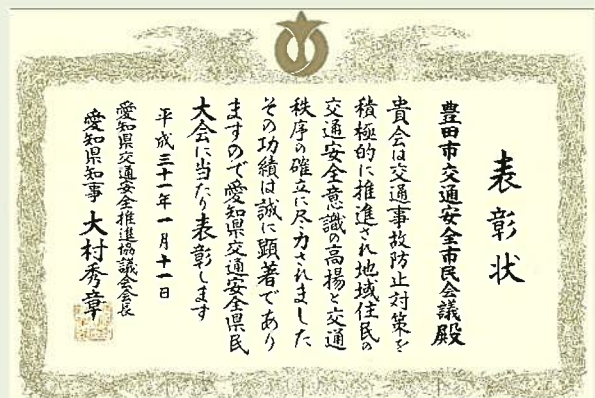 表彰状
豊田市交通安全市民会議殿
貴会は交通事故防止対策を
積極的に推進され地域住民の
交通安全意識の高揚と交通
秩序の確立に尽力されました
その功績は誠に顕著であり
ますので愛知県交通安全県民
大会に当たり表彰します
平成三十一年一月十一日
愛知県交通安全推進協議会会長
愛知県知事 大村秀章